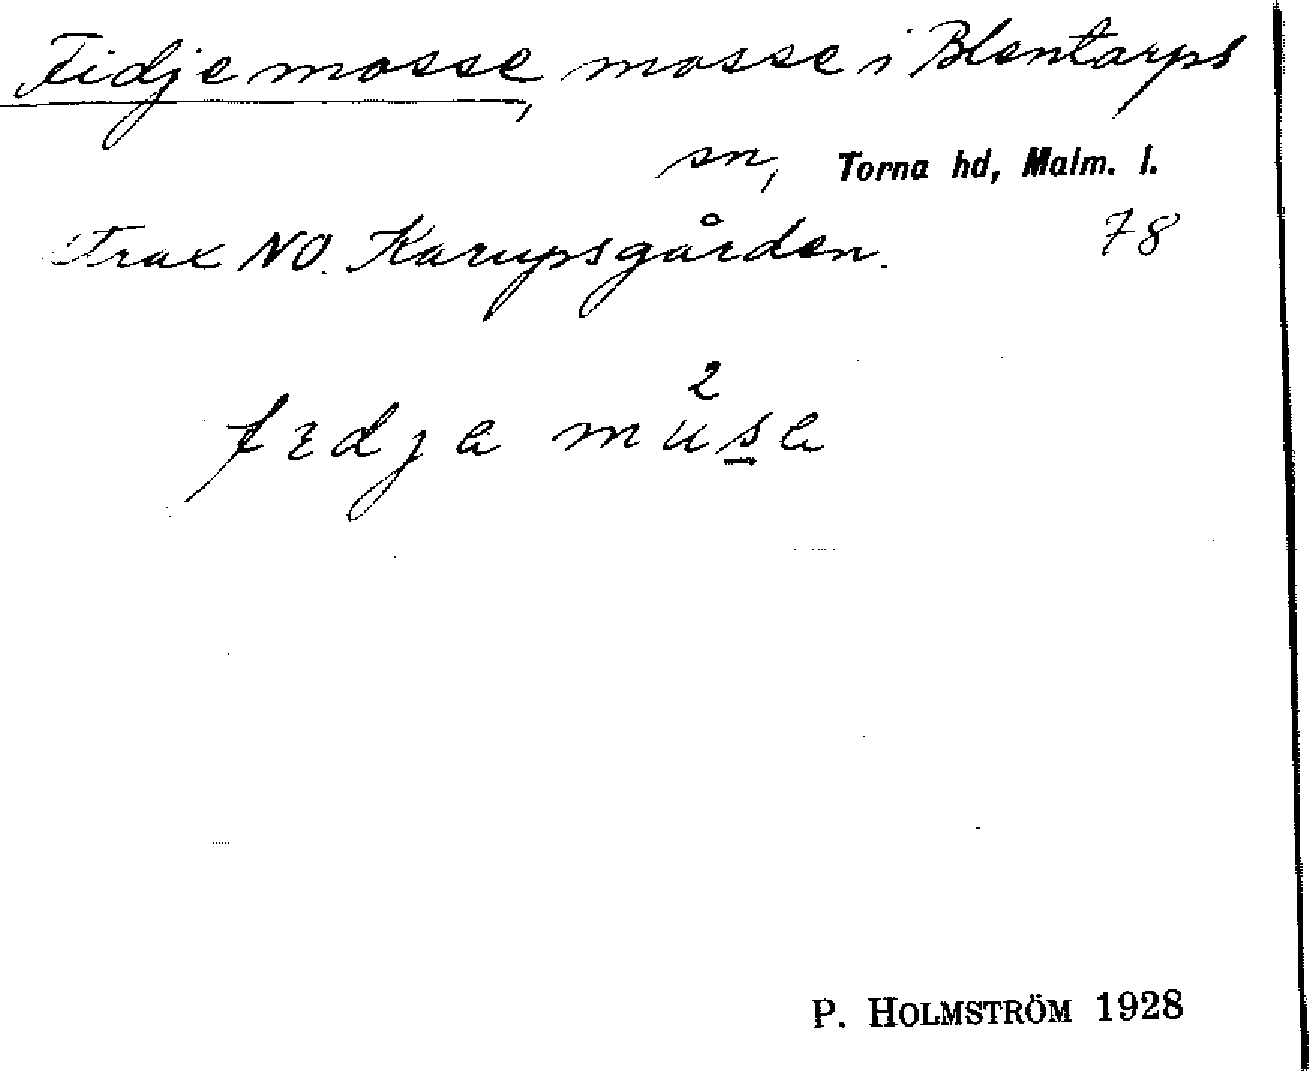 Fidje mosse, mosse i Blentarps
sn, Torna hd, Malm. l.
Strax NO. Karupsgården. 78
2
fɪdja musa
P. HOLMSTRÖM 1928